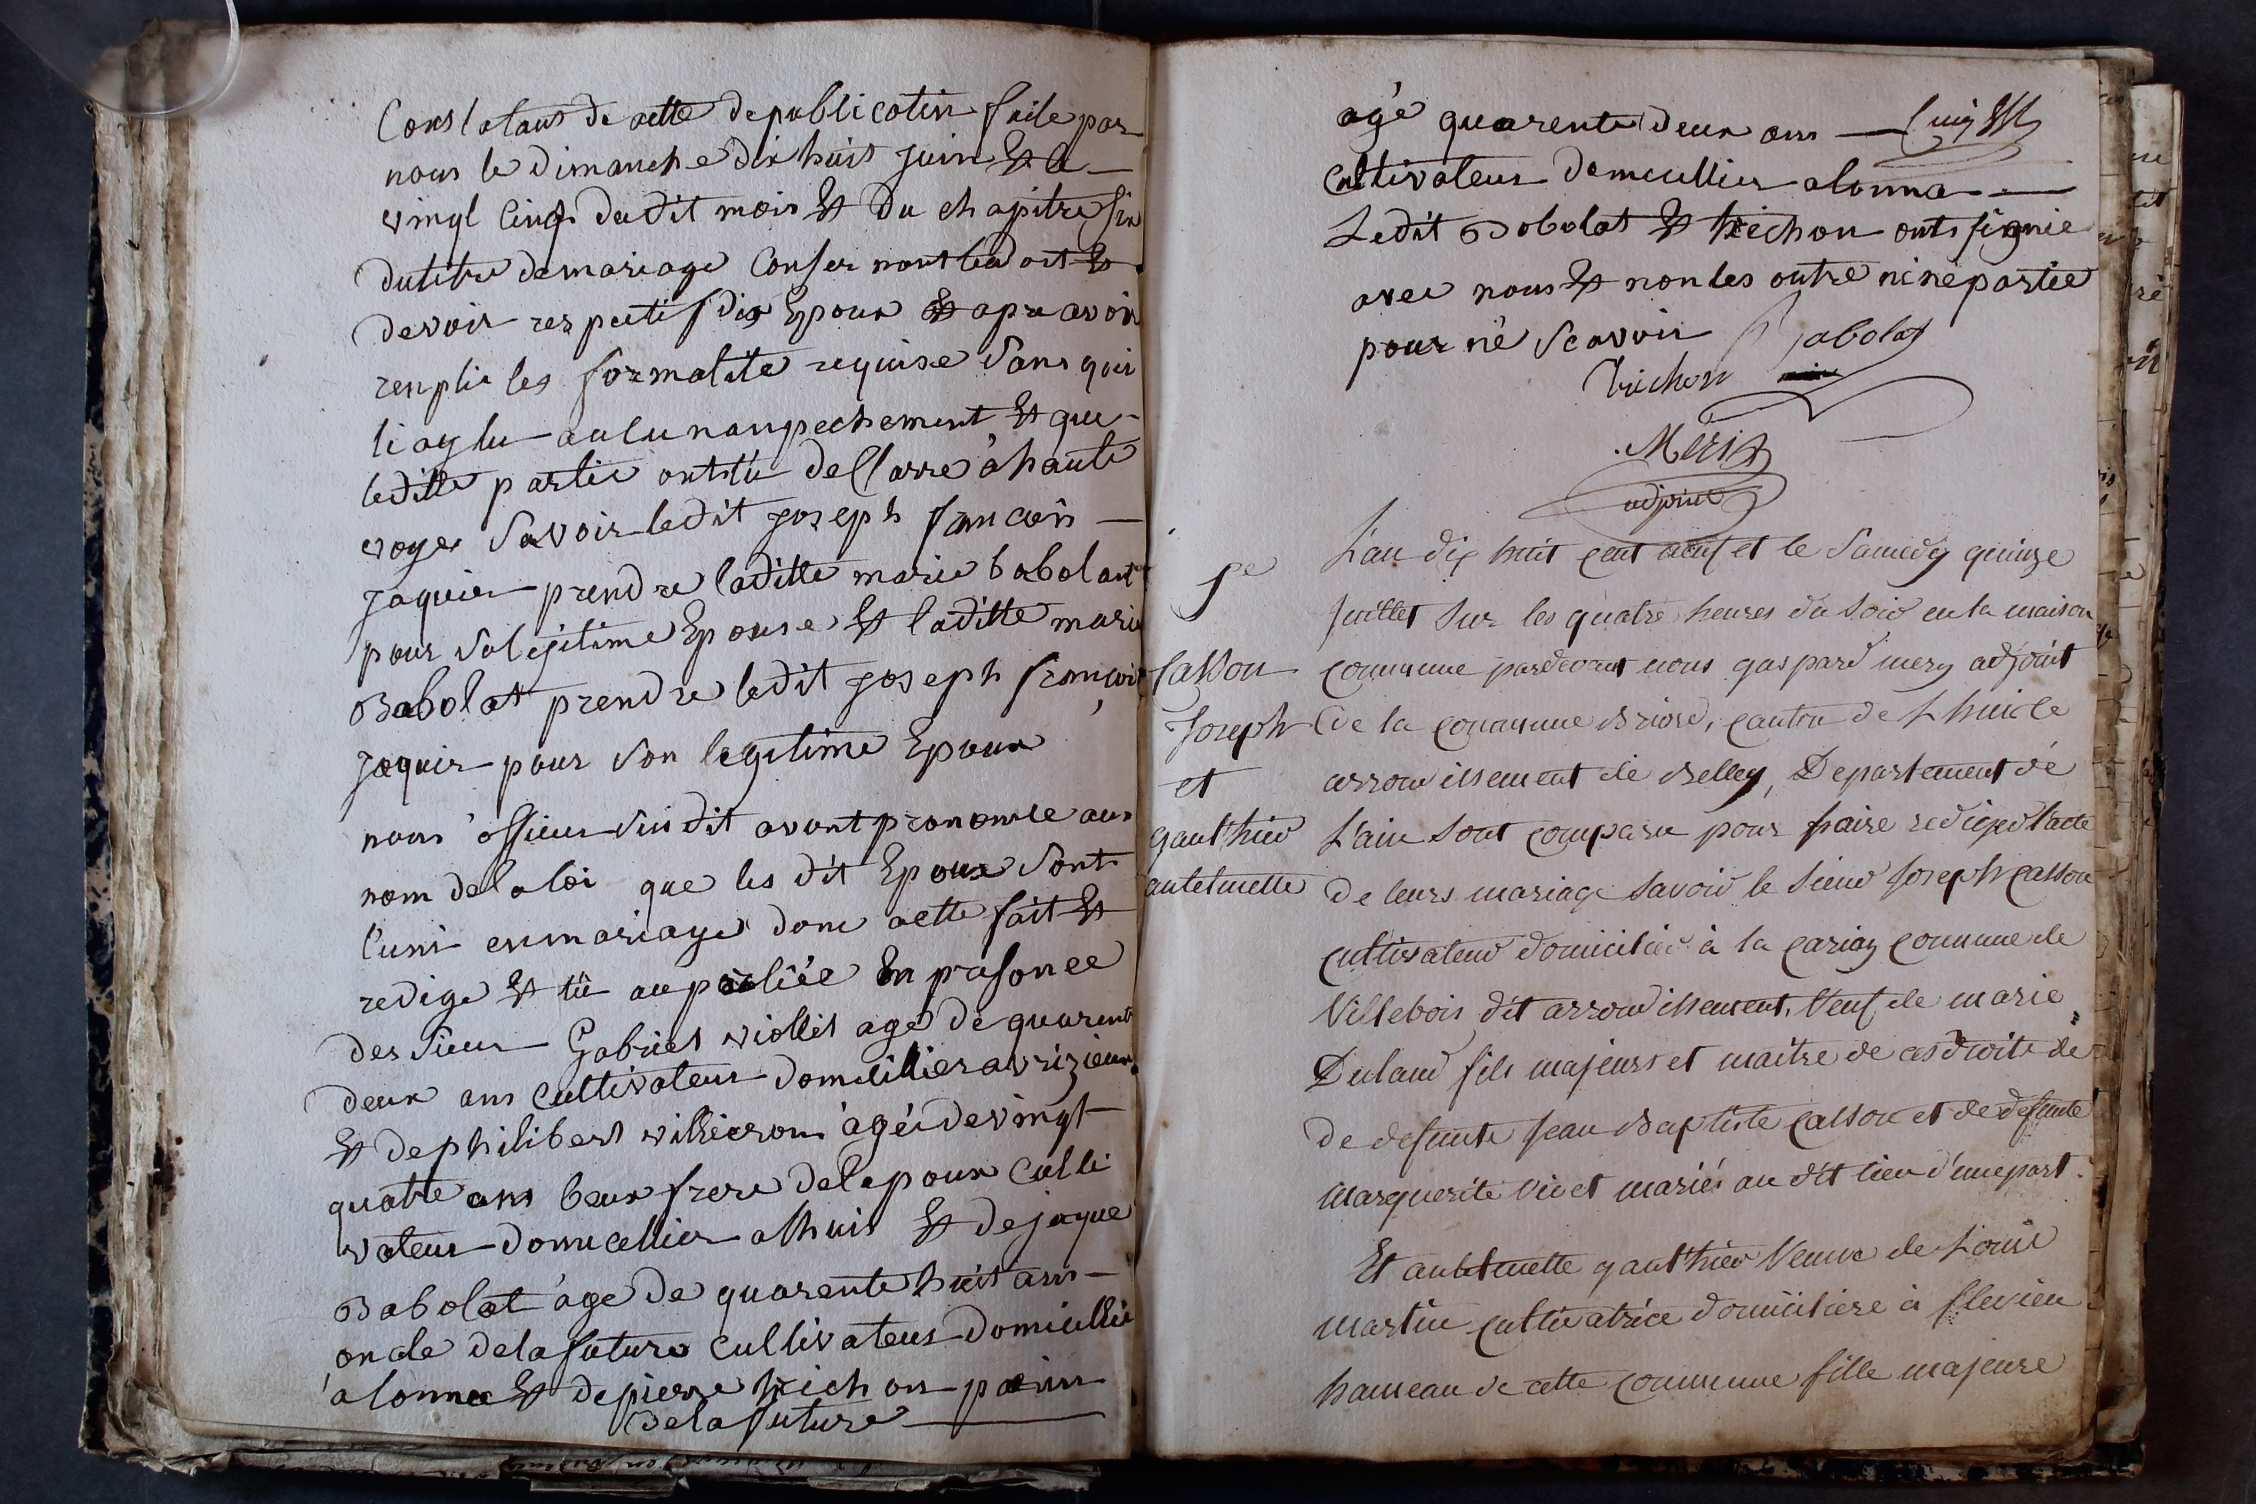 Constatans de actte de publicatin faite par
nous le dimanche dix huit juin Et le
vingt cinq dudit mois Et du chapitre six
dutitre de mariage Consernant les doit Et
devoir respectif dis Epoux Et apre avoir
remplie les formalite requise Sans quoi
li ay lu aucun anpechement Et que
leditte partie ont tû decllarre à haute
voye Savoir ledit joseph francois
jaquier prendre laditte marie babolant
pour Sa legitime Epouse Et laditte marie
Babolat prendre ledit joseph françois
jaquir pour Son legitime Epoux
nous officier Susdit avont prononcée au
nom de la loi que les dit Epoux Sont
l'uni en mariage donc actte fait Et
redige Et lû au partiée En presonce
des Sieur Gabriel violliet age de quarent
deux ans Cultivateur domicillier a vrizieux
Et de philibert villierrom àgéi de vingt
quatre ans beux frere del epoux Culti
vateur domicellier alhuis Et de jaque
Babolat àge de quarente huit ans
oncle de la future cultivateur Domicillié
à lonna Et de pierre trichon parin
de la future
agé quarente deux ans
Cultivateur domicillier a lonna
Ledit Babolat Et trichon onts signie
avec nous Et non les outre ni ne partie
pour né Scavoir Babolat
Trichon
Meris
adjoint
L'an dix huit cent neuf et le Samedy quinze
juillet Sur les quatre heures du Soir en la maison
commune pardevant nous gaspard mery adjoint
de la commune Briord, canton de Lhuicle
arrondissement de Belley, Departement de
L'ain Sont comparu pour faire rediger l'acte
de leurs mariage Savoir le Sieur Joseph Casson
cultivateur domicilié à la cariaz commune de
Villebois dit arrondissement, Veuf de marie
Duland fils majeurs et maitre de ces droits de
de defunte Jean Baptiste Casson et de defunte
Marguerite Vivet mariés au dit lieu d'une part.
Et antelmette gauthier Veuve de Louis
Martin cultivatrice domiciliere à flevieu
hameau de cette commune fille majeure
5e
Casson
Joseph
et
gauthier
antelmette